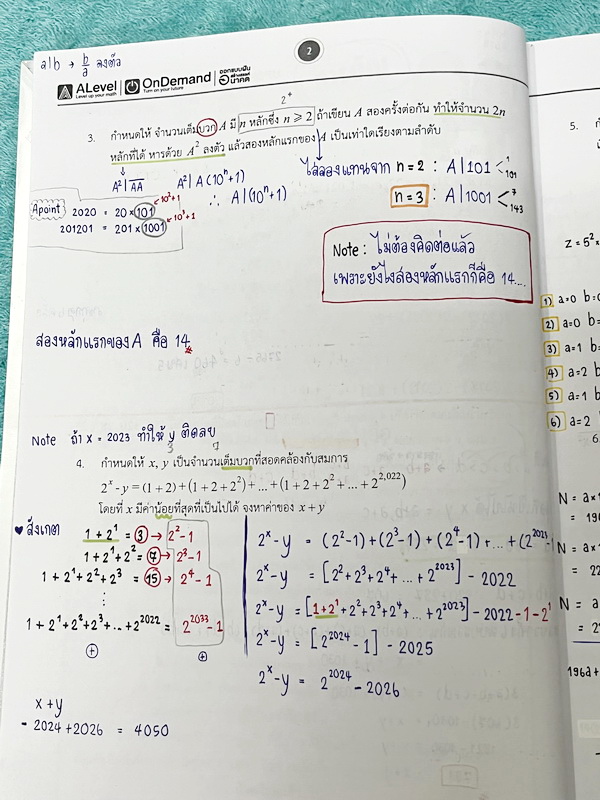 a|b → b/a ลงตัว
2
ALevel
Level up your math
OnDemand
Turn on your future
ออกแบบฝัน
สร้างสรรค์
อนาคต
2⁺
3. กำหนดให้ จำนวนเต็มบวก A มี n หลักซึ่ง n ⩾ 2 ถ้าเขียน A สองครั้งต่อกัน ทำให้จำนวน 2n
หลักที่ได้ หารด้วย A² ลงตัว แล้วสองหลักแรกของ A เป็นเท่าใดเรียงตามลำดับ
A² | AA
A² | A(10ⁿ+1)
∴ A | (10ⁿ+1)
ไล่ลองแทนจาก n = 2 : A | 101 < 1
101
n = 3 : A | 1001 < 7
143
Apoint
2020 = 20 × 101
10²+1
201201 = 201 × 1001
10³+1
Note : ไม่ต้องคิดต่อแล้ว
เพราะยังไงสองหลักแรกก็คือ 14....
สองหลักแรกของ A คือ 14
Note ถ้า x = 2023 ทำให้ y ติดลบ
4. กำหนดให้ x, y เป็นจำนวนเต็มบวกที่สอดคล้องกับสมการ
2ˣ - y = (1+2) + (1+2+2²) + ... + (1+2+2²+...+2^2,022)
โดยที่ x มีค่าน้อยที่สุดที่เป็นไปได้ จงหาค่าของ x + y
♥ สังเกต
1 + 2¹ = 3 → 2² - 1
1 + 2¹ + 2² = 7 → 2³ - 1
1 + 2¹ + 2² + 2³ = 15 → 2⁴ - 1
⋮
1 + 2¹ + 2² + 2³ + ... + 2^2022 = 2^2033 - 1
+ +
2ˣ - y = (2²-1) + (2³-1) + (2⁴-1) + ... + (2^2023
2ˣ - y = [2² + 2³ + 2⁴ + ... + 2^2023] - 2022
2ˣ - y = [1 + 2¹ + 2² + 2³ + 2⁴ + ... + 2^2023] - 2022 - 1 - 2¹
2ˣ - y = [2^2024 - 1] - 2025
2ˣ - y = 2^2024 - 2026
x + y
- 2024 + 2026 = 4050
5.
z = 5²
1) a=0 b=
2) a=0 b=
3) a=1 b=
4) a=2 b
5) a=1 b
6) a=2
6.
N = a×1
= 196
N = a×1
= 22
N = a
= 2
196a +